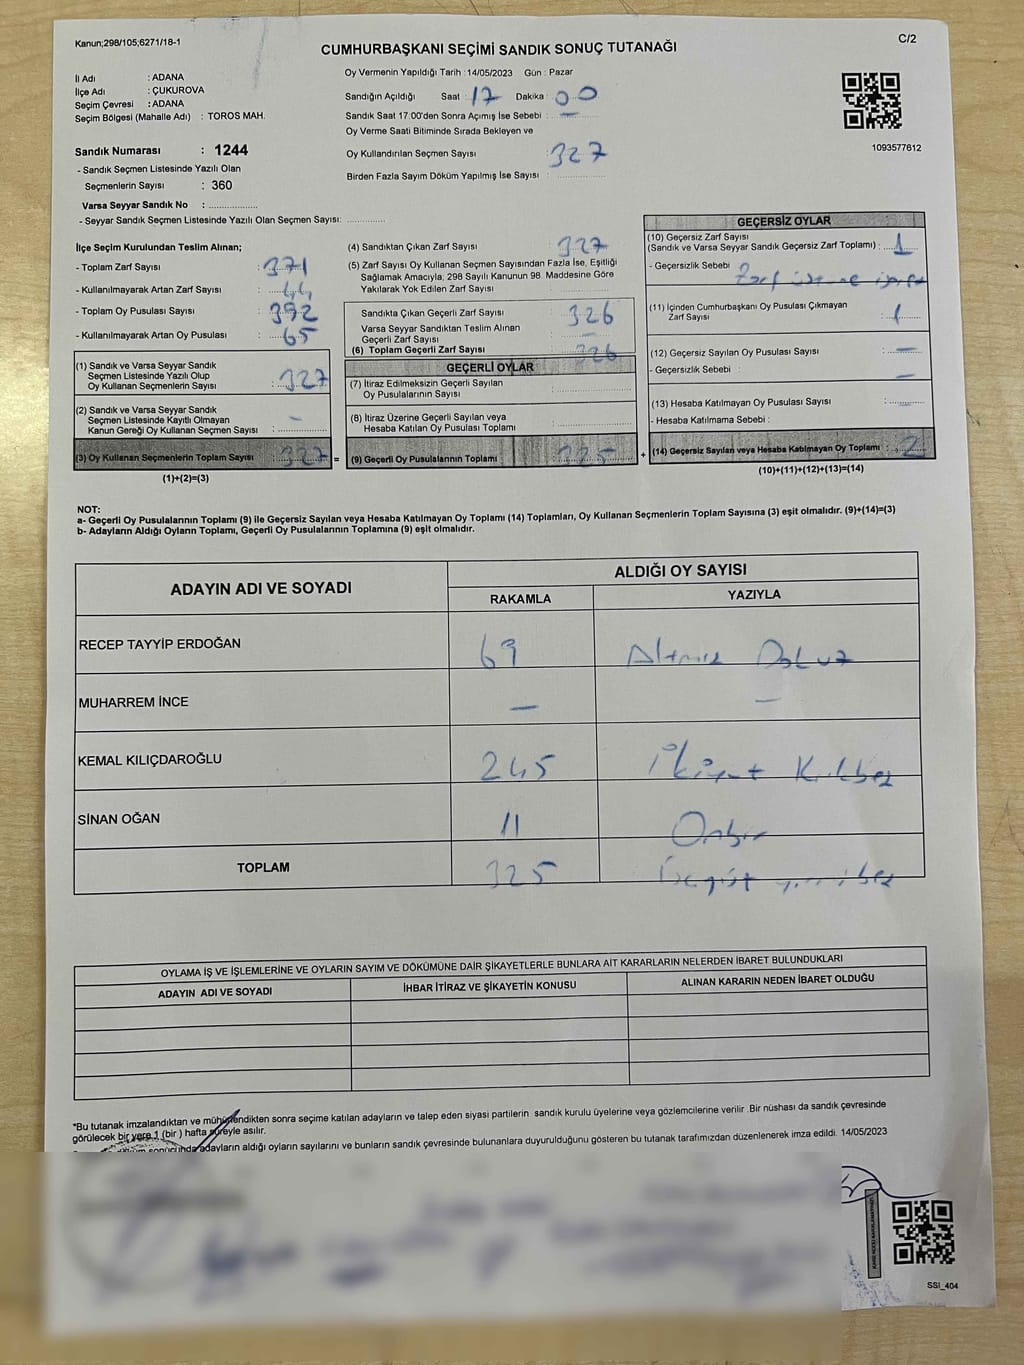 Kanun;298/105;6271/18-1
C/2
CUMHURBAŞKANI SEÇİMİ SANDIK SONUÇ TUTANAĞI
İl Adı : ADANA
İlçe Adı : ÇUKUROVA
Seçim Çevresi : ADANA
Seçim Bölgesi (Mahalle Adı) : TOROS MAH.
Sandık Numarası : 1244
- Sandık Seçmen Listesinde Yazılı Olan
Seçmenlerin Sayısı : 360
Varsa Seyyar Sandık No :
- Seyyar Sandık Seçmen Listesinde Yazılı Olan Seçmen Sayısı:
Oy Vermenin Yapıldığı Tarih : 14/05/2023 Gün : Pazar
Sandığın Açıldığı Saat : 17 Dakika : 00
Sandık Saat 17:00'den Sonra Açımış İse Sebebi : —
Oy Verme Saati Bitiminde Sırada Bekleyen ve
Oy Kullandırılan Seçmen Sayısı : 327
Birden Fazla Sayım Döküm Yapılmış İse Sayısı :
1093577612
İlçe Seçim Kurulundan Teslim Alınan;
- Toplam Zarf Sayısı : 371
- Kullanılmayarak Artan Zarf Sayısı : 44
- Toplam Oy Pusulası Sayısı : 392
- Kullanılmayarak Artan Oy Pusulası : 65
(1) Sandık ve Varsa Seyyar Sandık
Seçmen Listesinde Yazılı Olup
Oy Kullanan Seçmenlerin Sayısı : 327
(2) Sandık ve Varsa Seyyar Sandık
Seçmen Listesinde Kayıtlı Olmayan
Kanun Gereği Oy Kullanan Seçmen Sayısı : –
(3) Oy Kullanan Seçmenlerin Toplam Sayısı : 327 =
(1)+(2)=(3)
(4) Sandıktan Çıkan Zarf Sayısı : 327
(5) Zarf Sayısı Oy Kullanan Seçmen Sayısından Fazla İse, Eşitliği
Sağlamak Amacıyla, 298 Sayılı Kanunun 98. Maddesine Göre
Yakılarak Yok Edilen Zarf Sayısı
Sandıkta Çıkan Geçerli Zarf Sayısı : 326
Varsa Seyyar Sandıktan Teslim Alınan
Geçerli Zarf Sayısı : –
(6) Toplam Geçerli Zarf Sayısı : 326
GEÇERLİ OYLAR
(7) İtiraz Edilmeksizin Geçerli Sayılan
Oy Pusulalarının Sayısı :
(8) İtiraz Üzerine Geçerli Sayılan veya
Hesaba Katılan Oy Pusulası Toplamı :
(9) Geçerli Oy Pusulalarının Toplamı : 325 +
GEÇERSİZ OYLAR
(10) Geçersiz Zarf Sayısı
(Sandık ve Varsa Seyyar Sandık Geçersiz Zarf Toplamı) : 1
- Geçersizlik Sebebi : Zarf üstüne işaret
(11) İçinden Cumhurbaşkanı Oy Pusulası Çıkmayan
Zarf Sayısı : 1
(12) Geçersiz Sayılan Oy Pusulası Sayısı : —
- Geçersizlik Sebebi : —
(13) Hesaba Katılmayan Oy Pusulası Sayısı :
- Hesaba Katılmama Sebebi :
(14) Geçersiz Sayılan veya Hesaba Katılmayan Oy Toplamı : 2
(10)+(11)+(12)+(13)=(14)
NOT:
a- Geçerli Oy Pusulalarının Toplamı (9) ile Geçersiz Sayılan veya Hesaba Katılmayan Oy Toplamı (14) Toplamları, Oy Kullanan Seçmenlerin Toplam Sayısına (3) eşit olmalıdır. (9)+(14)=(3)
b- Adayların Aldığı Oyların Toplamı, Geçerli Oy Pusulalarının Toplamına (9) eşit olmalıdır.
ADAYIN ADI VE SOYADI
ALDIĞI OY SAYISI
RAKAMLA YAZIYLA
RECEP TAYYİP ERDOĞAN 69 Altmış Dokuz
MUHARREM İNCE — —
KEMAL KILIÇDAROĞLU 245 İkiyüz Kırkbeş
SİNAN OĞAN 11 Onbir
TOPLAM 325 Üçyüz yirmibeş
OYLAMA İŞ VE İŞLEMLERİNE VE OYLARIN SAYIM VE DÖKÜMÜNE DAİR ŞİKAYETLERLE BUNLARA AİT KARARLARIN NELERDEN İBARET BULUNDUKLARI
ADAYIN ADI VE SOYADI İHBAR İTİRAZ VE ŞİKAYETİN KONUSU ALINAN KARARIN NEDEN İBARET OLDUĞU
*Bu tutanak imzalandıktan ve mühürlendikten sonra seçime katılan adayların ve talep eden siyasi partilerin sandık kurulu üyelerine veya gözlemcilerine verilir .Bir nüshası da sandık çevresinde
görülecek bir yere 1 (bir ) hafta süreyle asılır.
sonucunda adayların aldığı oyların sayılarını ve bunların sandık çevresinde bulunanlara duyurulduğunu gösteren bu tutanak tarafımızdan düzenlenerek imza edildi. 14/05/2023
SSI_404